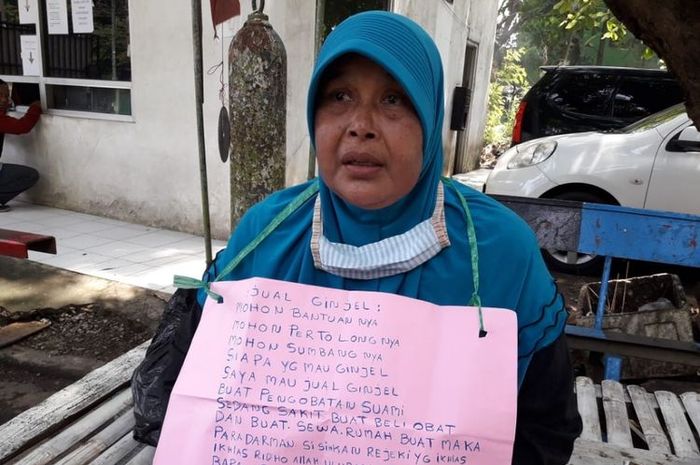 JUAL GINJEL :
MOHON BANTUAN NYA
MOHON PERTO LONG NYA
MOHON SUMBANG NYA
SIAPA YG MAU GINJEL
SAYA MAU JUAL GINJEL
BUAT PENGOBATAN SUAMI
SEDANG SAKIT BUAT BELI OBAT
DAN BUAT. SEWA. RUMAH BUAT MAKA
PARA DARMAN SI SINKAN REJEKI YG IKHLAS
IKHLAS RIDHO ALLAH